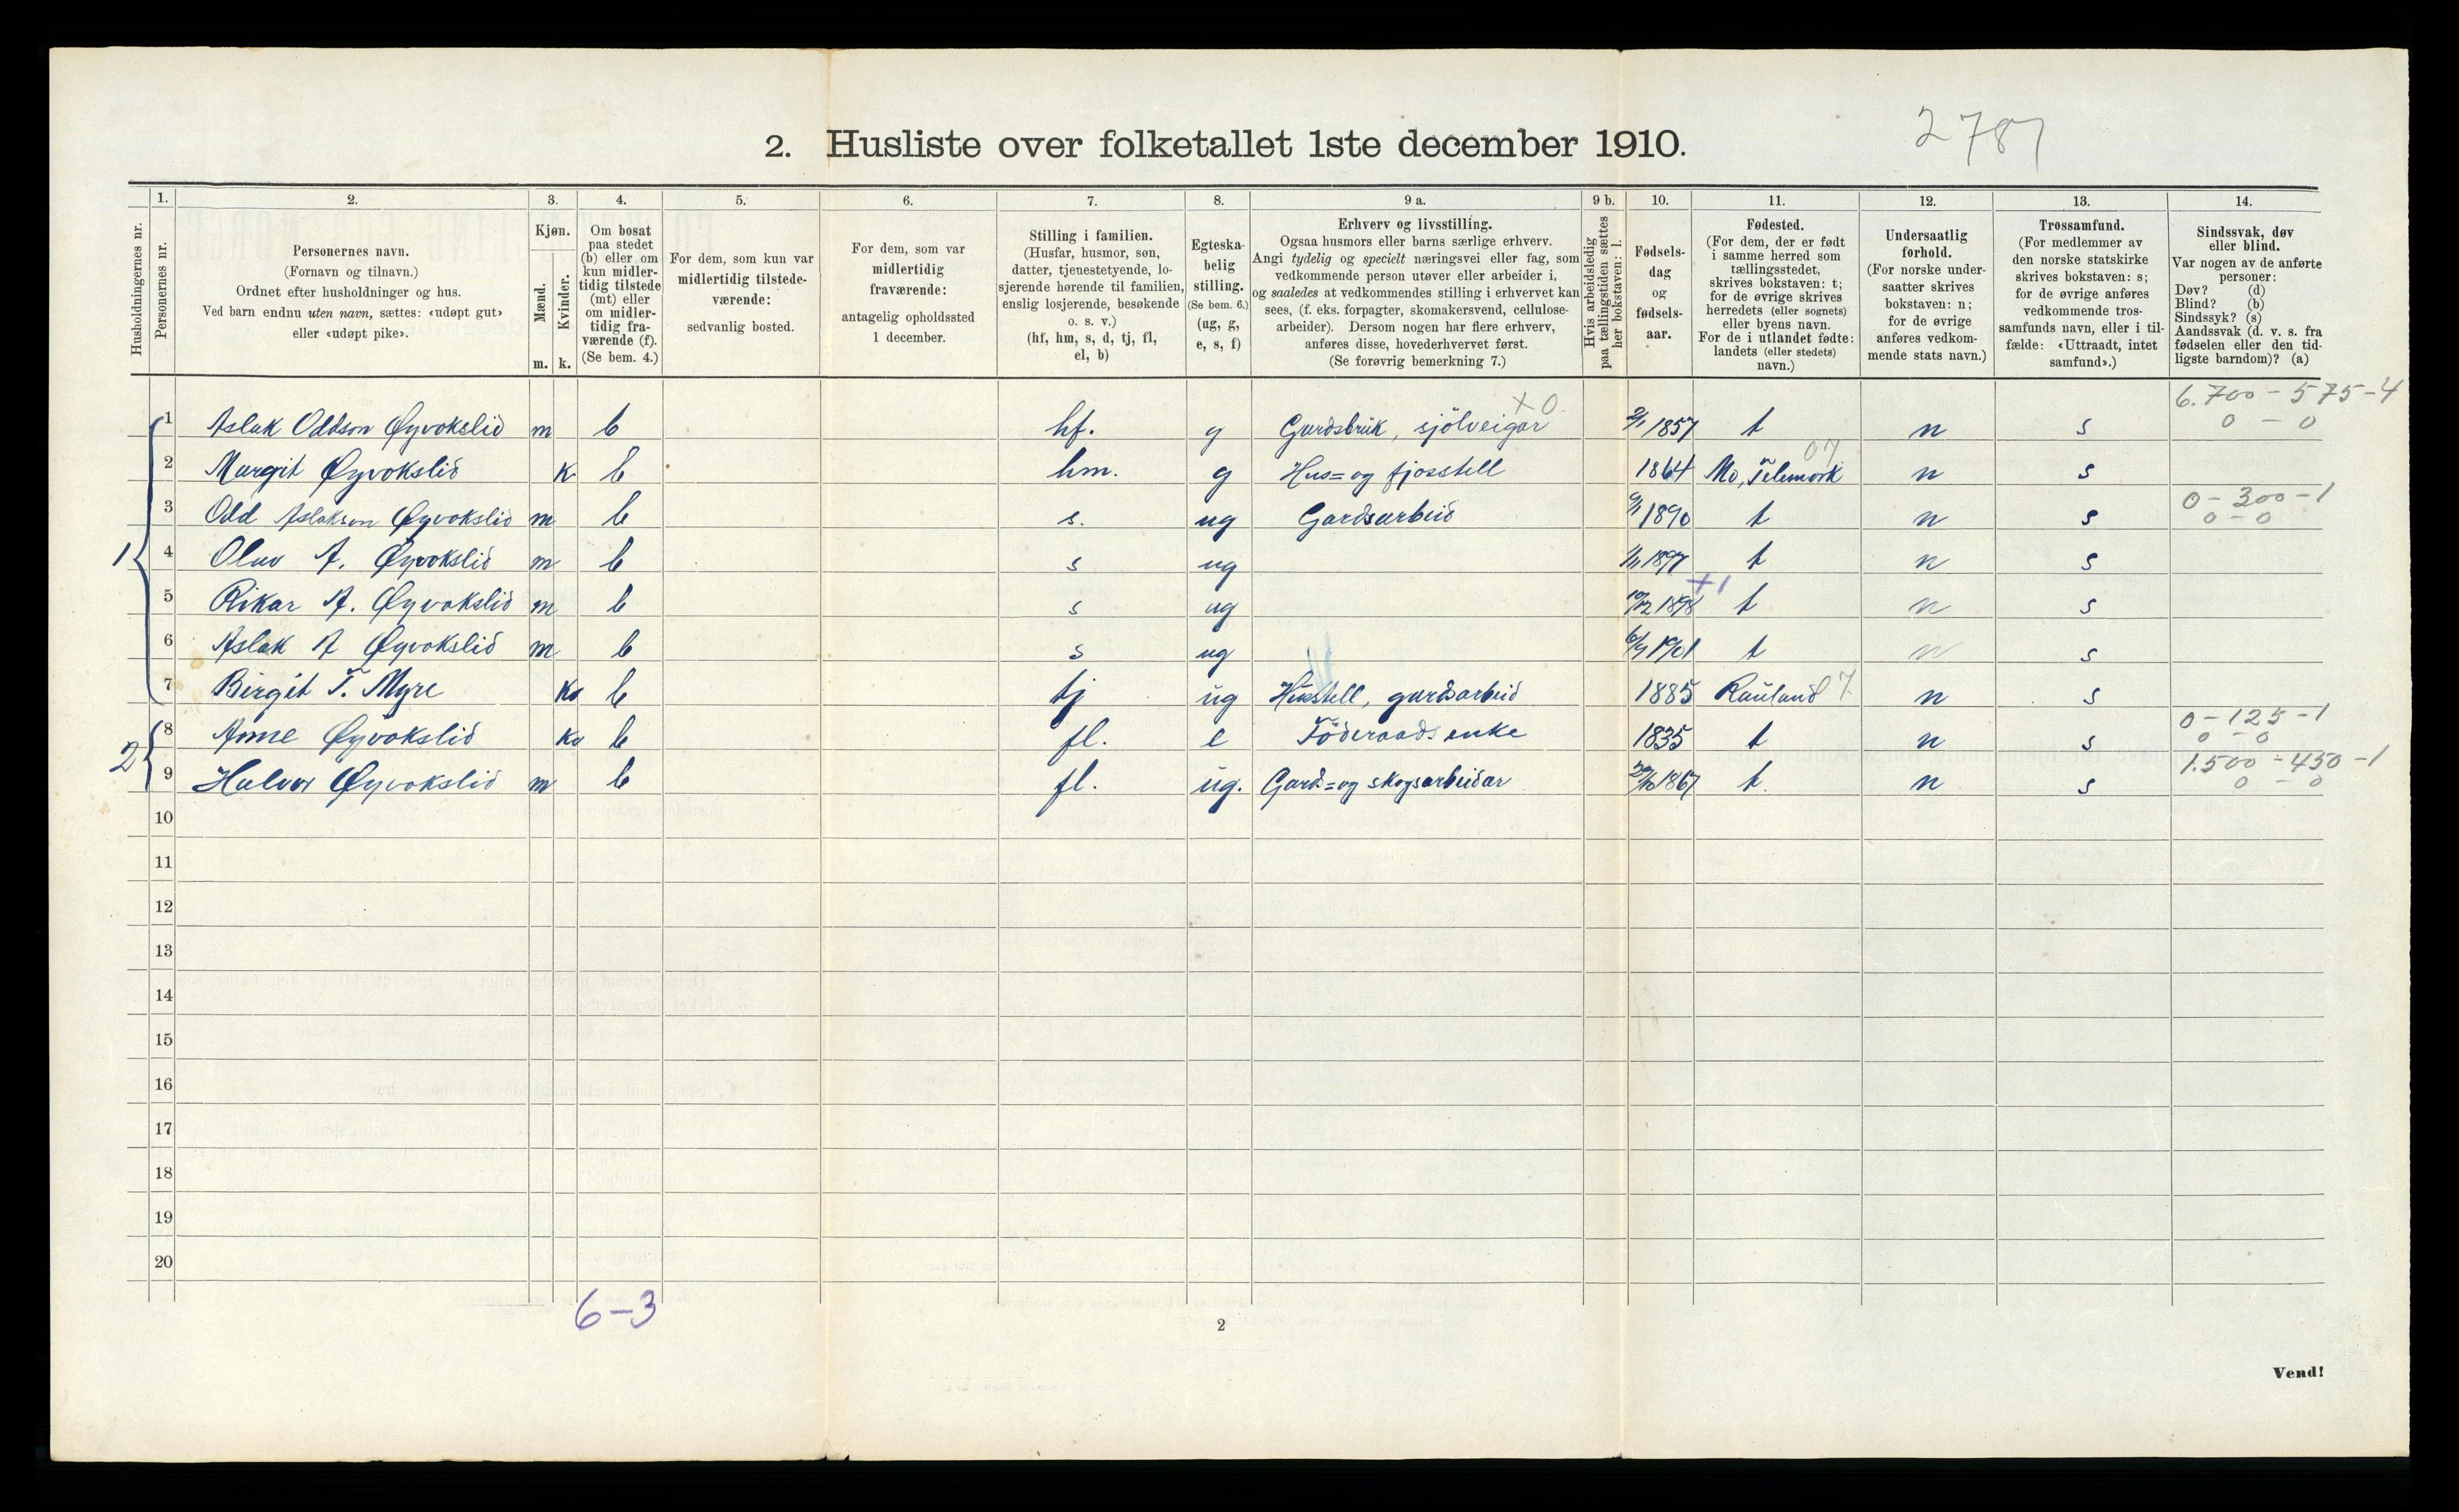 2787
2. Husliste over folketallet 1ste december 1910.
Husholdningernes nr.
1. Personernes nr.
2. Personernes navn.
(Fornavn og tilnavn.)
Ordnet efter husholdninger og hus.
Ved barn endnu uten navn, sættes: «udøpt gut»
eller «udøpt pike».
3. Kjøn.
Mænd. m.
Kvinder. k.
4. Om bosat
paa stedet
(b) eller om
kun midler-
tidig tilstede
(mt) eller
om midler-
tidig fra-
værende (f).
(Se bem. 4.)
5. For dem, som kun var
midlertidig tilstede-
værende:
sedvanlig bosted.
6. For dem, som var
midlertidig
fraværende:
antagelig opholdssted
1 december.
7. Stilling i familien.
(Husfar, husmor, søn,
datter, tjenestetyende, lo-
sjerende hørende til familien,
enslig losjerende, besøkende
o. s. v.)
(hf, hm, s, d, tj, fl,
el, b)
8. Egteska-
belig
stilling.
(Se bem. 6.)
(ug, g,
e, s, f)
9 a. Erhverv og livsstilling.
Ogsaa husmors eller barns særlige erhverv.
Angi tydelig og specielt næringsvei eller fag, som
vedkommende person utøver eller arbeider i,
og saaledes at vedkommendes stilling i erhvervet kan
sees, (f. eks. forpagter, skomakersvend, cellulose-
arbeider). Dersom nogen har flere erhverv,
anføres disse, hovederhvervet først.
(Se forøvrig bemerkning 7.)
9 b. Hvis arbeidsledig
paa tællingstiden sættes
her bokstaven: l.
10. Fødsels-
dag
og
fødsels-
aar.
11. Fødested.
(For dem, der er født
i samme herred som
tællingsstedet,
skrives bokstaven: t;
for de øvrige skrives
herredets (eller sognets)
eller byens navn.
For de i utlandet fødte:
landets (eller stedets)
navn.)
12. Undersaatlig
forhold.
(For norske under-
saatter skrives
bokstaven: n;
for de øvrige
anføres vedkom-
mende stats navn.)
13. Trossamfund.
(For medlemmer av
den norske statskirke
skrives bokstaven: s;
for de øvrige anføres
vedkommende tros-
samfunds navn, eller i til-
fælde: «Uttraadt, intet
samfund».)
14. Sindssvak, døv
eller blind.
Var nogen av de anførte
personer:
Døv? (d)
Blind? (b)
Sindssyk? (s)
Aandssvak (d. v. s. fra
fødselen eller den tid-
ligste barndom)? (a)
6.700 - 575 - 4
x 0.
1 1 Aslak Oddson Øyvokslid m b hf. g Gardsbruk, sjölveigar 1857 t n s 0 - 0
07
2 Margit Øyvokslid k b hm. g Hus= og fjosstell 1864 Mo, Telemork n s
0 - 300 - 1
3 Odd Aslakson Øyvokslid m b s. ug Gardsarbeid 9/1 1890 t n s 0 - 0
4 Olav A. Øyvokslid m b s ug 1897 t n s
+1
5 Rikar A. Øyvokslid m b s ug 10/12 1898 t n s
6 Aslak A Øyvokslid m b s ug 1901 t n s
7 Birgit T. Myre k b tj ug Husstell, gardsarbeid 1885 Rauland 7 n s
0 - 125 - 1
2 8 Anne Øyvokslid k b fl. e Föderaadsenke 1835 t n s 0 - 0
1.500 - 450 - 1
9 Halvor Øyvokslid m b fl. ug. Gard= og skogsarbeidar 1867 t. n s 0 - 0
10
11
12
13
14
15
16
17
18
19
20
6-3
2
Vend!